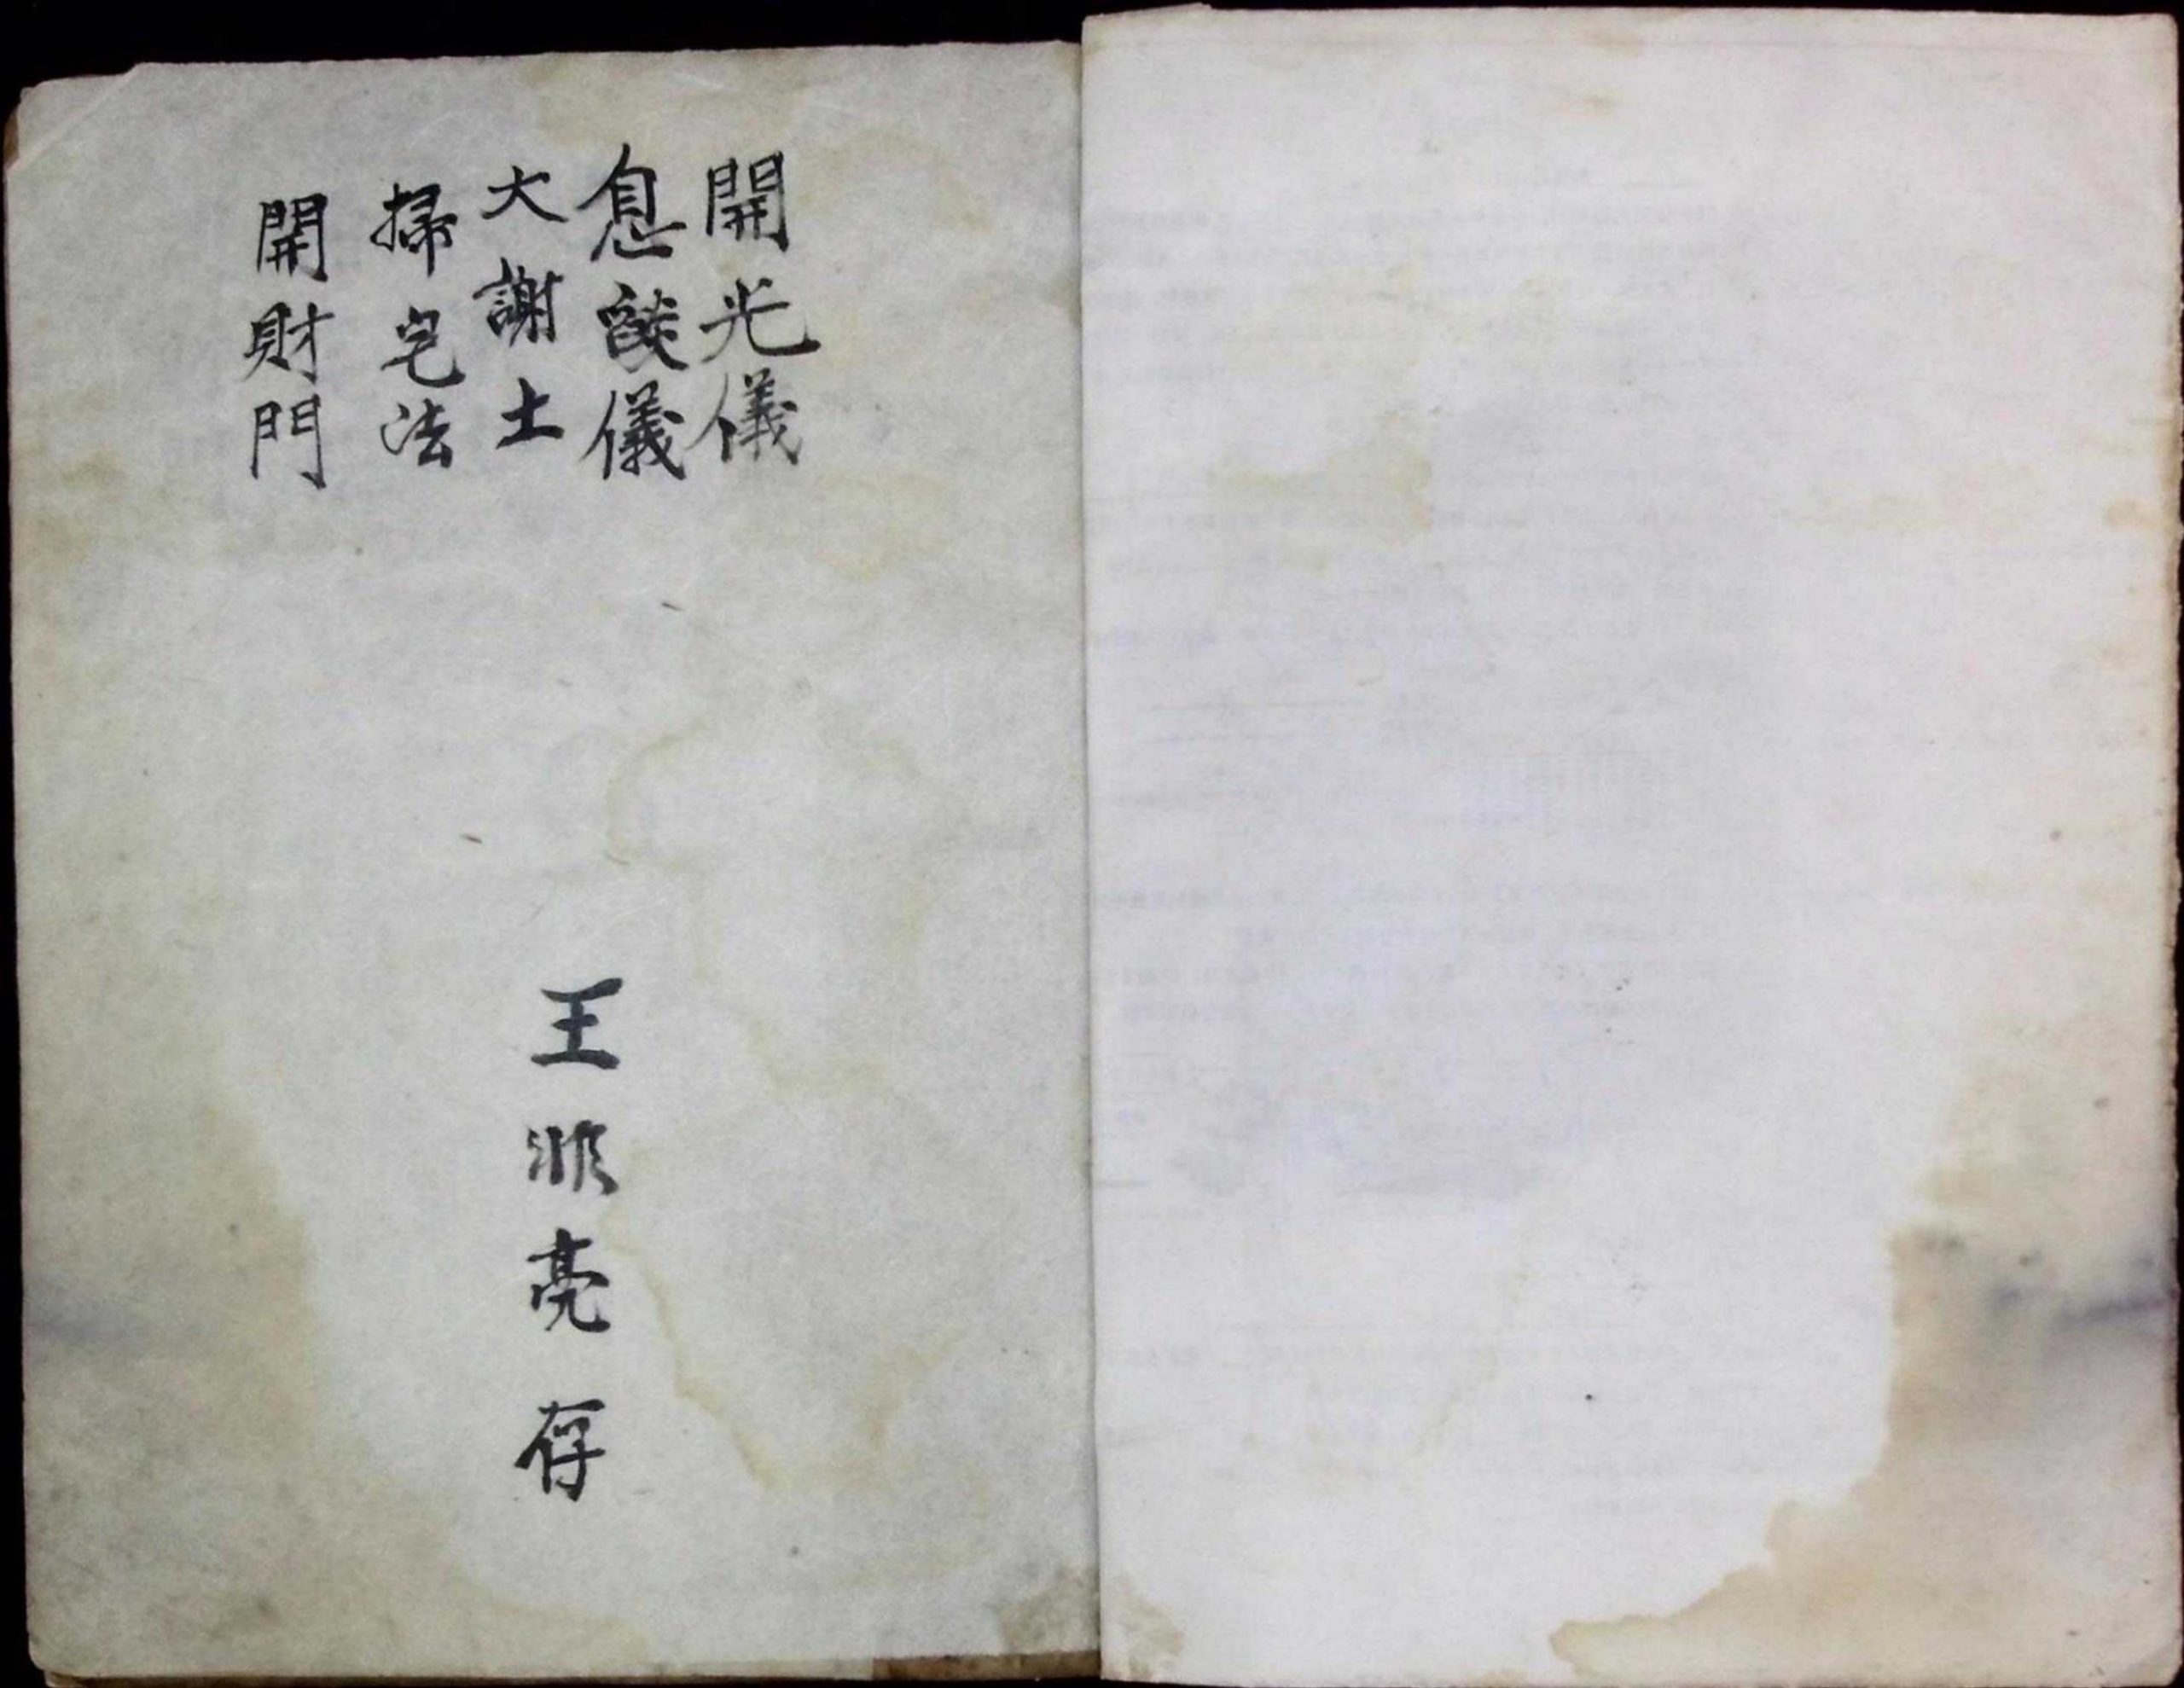 開光儀
息談儀
大謝土
掃宅法
開財門
王兆亮存